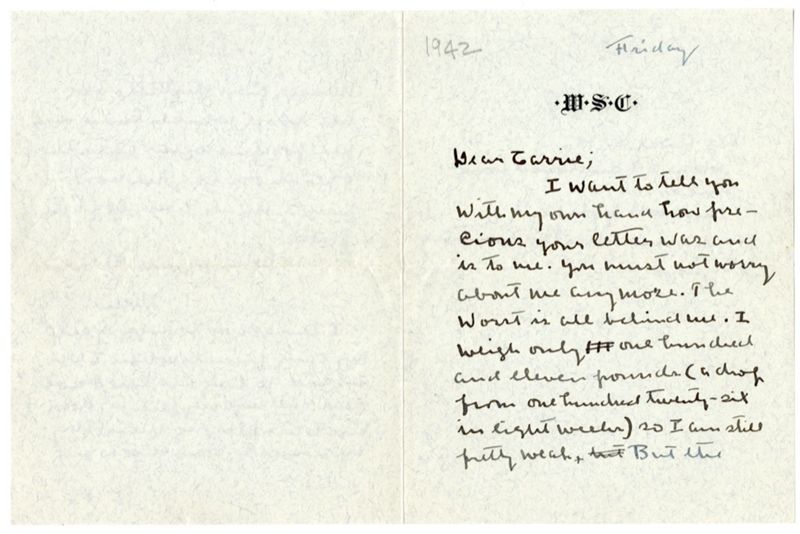 1942 Friday
·W·S·C·
Dear Carrie;
I want to tell you
with my own hand how pre-
cious your letter was and
is to me. You must not worry
about me any more. The
worst is all behind me. I
weigh only 111 one hundred
and eleven pounds (a drop
from one hundred twenty-six
in eight weeks) so I am still
pretty weak, but But the